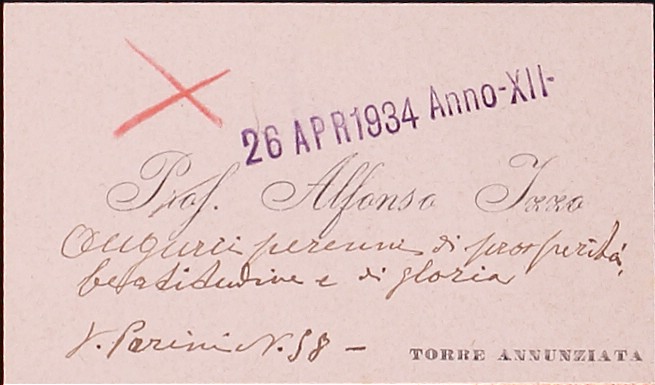 26 APR 1934 Anno-XII-
Prof. Alfonso Izzo
Auguri perenni di prosperità,
beatitudine e di gloria
V. Parini N. 58 -
TORRE ANNUNZIATA